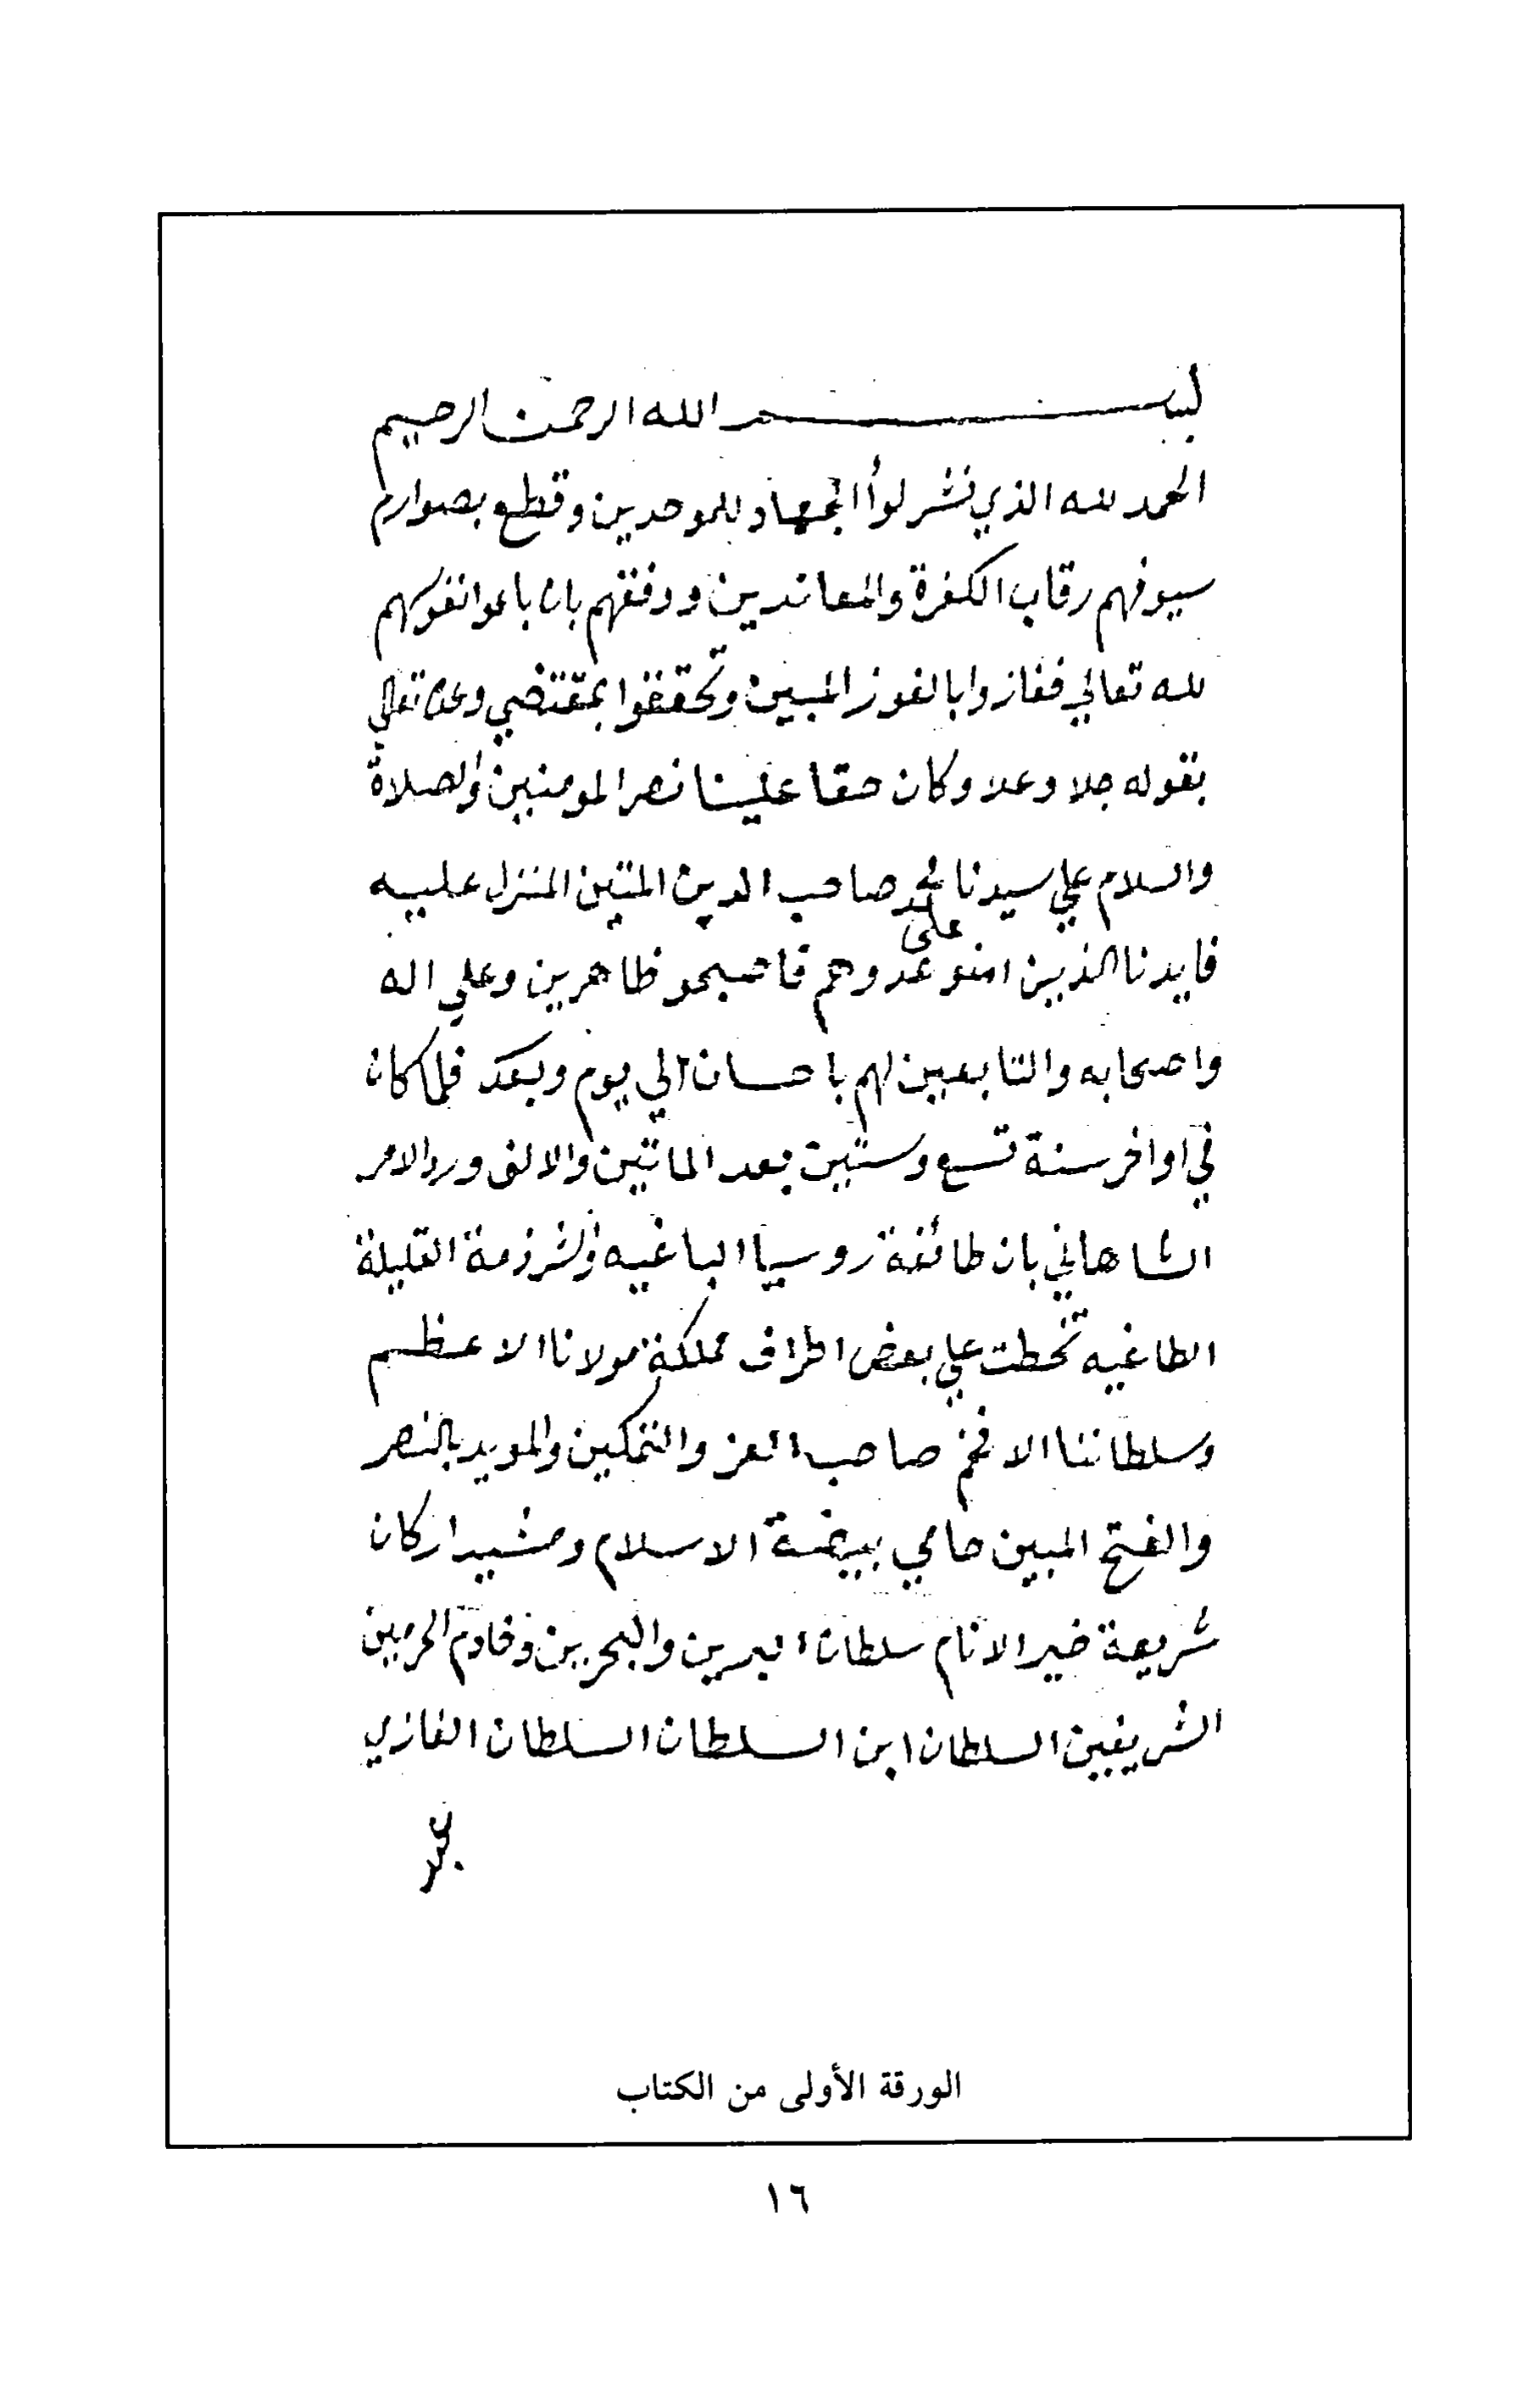 بسم الله الرحمن الرحيم
الحمد لله الذي نشر لوأ الجهاد للموحدين وقطع بصوارم
سيوفهم رقاب الكفرة والمعاندين ووفقهم بان باعوا نفوسهم
لله تعالي ففازوا بالفوز المبين وتحققوا بمقتضي وعده تعالي
بقوله جلا وعلا وكان حقا علينا نصر المومنين والصلاة
والسلام علي سيدنا محمد صاحب الدين المتين المنزل عليه
فايدنا الذين امنو على عدوهم فاصبحو ظاهرين وعلي اله
واصحابه والتابعين لهم باحسان الي يوم وبعد فلما كان
في اواخر سنة تسع وستين بعد الماتين والالف ورد الامر
الشاهاني بان طائفة روسيا الباغيه والشرذمة القليلة
الطاغيه تخطت علي بعض اطراف مملكة مولانا الاعظم
وسلطاننا الافخم صاحب العز والتمكين والمويد بالنصر
والفتح المبين حامي بيضة الاسلام ومشيد اركان
شريعة خير الانام سلطان البرين والبحرين وخادم الحرمين
الشريفين السلطان ابن السلطان السلطان الغازي
عبد
الورقة الأولى من الكتاب
١٦